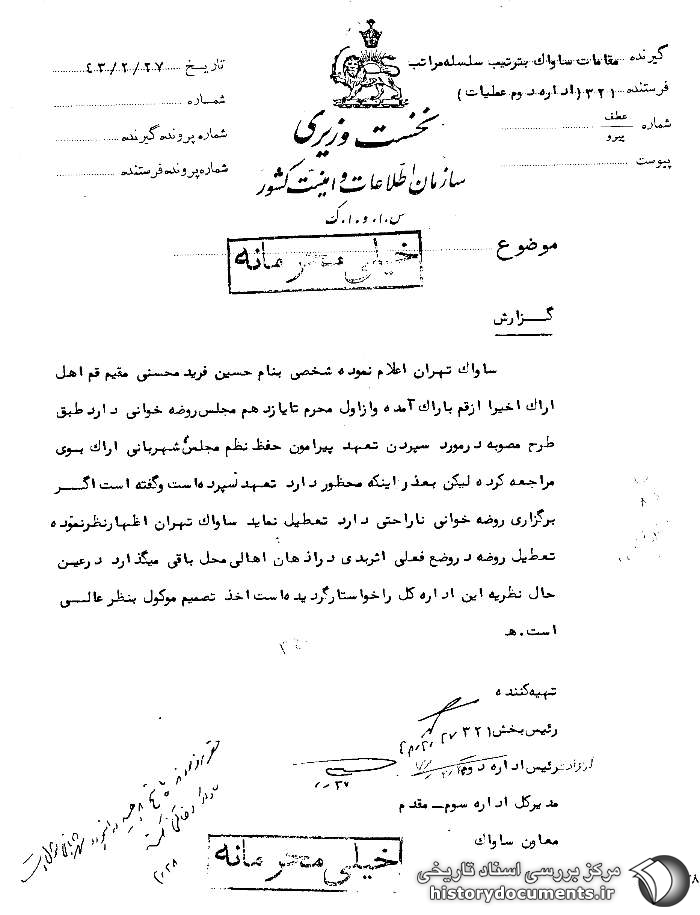 گیرنده مقامات ساواک بترتیب سلسله مراتب
فرستنده ۳۲۱ (اداره دوم عملیات)
شماره عطف
پیرو
پیوست
تاریخ ۴۳/۲/۲۷
شماره
شماره پرونده گیرنده
شماره پرونده فرستنده
نخست وزیری
سازمان اطلاعات و امنیت کشور
س.ا.و.ا.ک
موضوع
خیلی محرمانه
گزارش
ساواک تهران اعلام نموده شخصی بنام حسین فرید محسنی مقیم قم اهل
اراک اخیرا ازقم باراک آمده وازاول محرم تایازدهم مجلس روضه خوانی دارد طبق
طرح مصوبه درمورد سپردن تعهد پیرامون حفظ نظم مجلس شهربانی اراک بوی
مراجعه کرده لیکن بعذر اینکه محظور دارد تعهد نسپرده است وگفته است اگر
برگزاری روضه خوانی ناراحتی دارد تعطیل نماید ساواک تهران اظهارنظرنموده
تعطیل روضه دروضع فعلی اثربدی دراذهان اهالی محل باقی میگذارد درعین
حال نظریه این اداره کل راخواستارگردیده است اخذ تصمیم موکول بنظر عالی
است.ه
تهیه کننده
رئیس بخش ۳۲۱ ۲۷
رئیس اداره دوم
مدیرکل اداره سوم - مقدم
معاون ساواک
خیلی محرمانه
مرکز بررسی اسناد تاریخی
historydocuments.ir